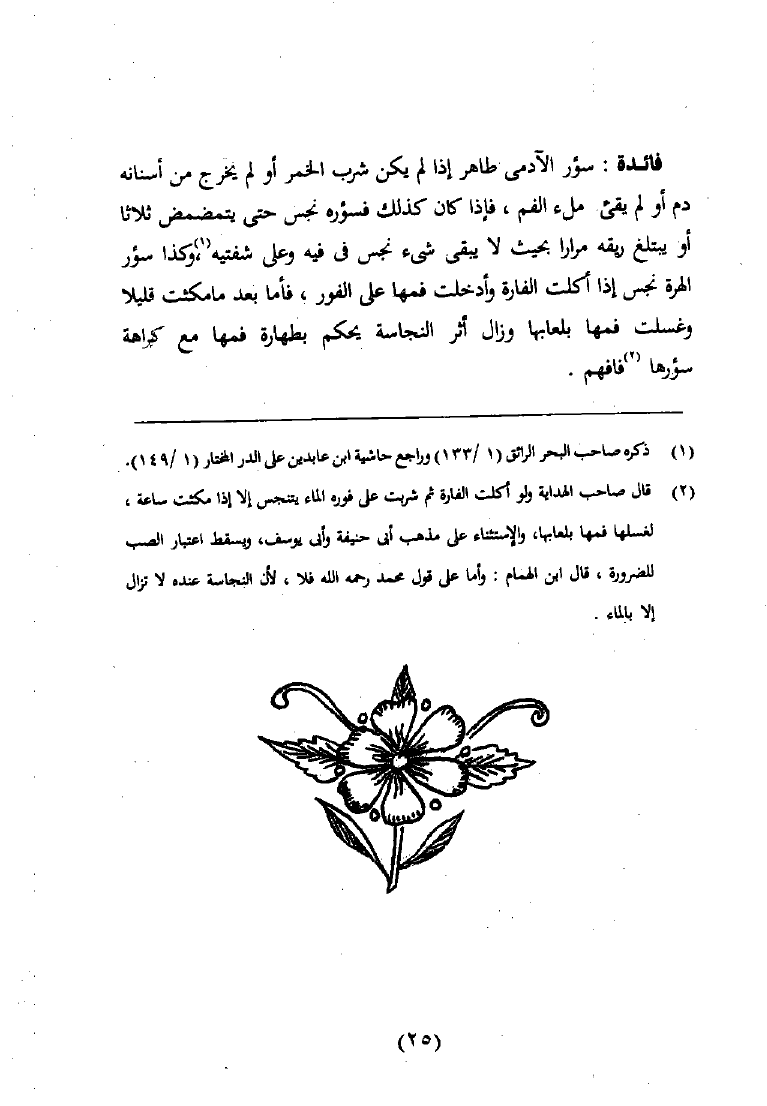 فائدة : سؤر الآدمى طاهر إذا لم يكن شرب الخمر أو لم يخرج من أسنانه
دم أو لم يقئ ملء الفم ، فإذا كان كذلك فسؤره نجس حتى يتمضمض ثلاثا
أو يبتلغ ريقه مرارا بحيث لا يبقى شىء نجس فى فيه وعلى شفتيه(١)، وكذا سؤر
الهرة نجس إذا أكلت الفارة وأدخلت فمها على الفور ، فأما بعد مامكثت قليلا
وغسلت فمها بلعابها وزال أثر النجاسة يحكم بطهارة فمها مع كراهة
سؤرها (٢) فافهم .
(١) ذكره صاحب البحر الرائق (١ /١٣٣) وراجع حاشية ابن عابدين على الدر المختار (١ /١٤٩).
(٢) قال صاحب الهداية ولو أكلت الفارة ثم شربت على فوره الماء يتنجس إلا إذا مكثت ساعة ،
لغسلها فمها بلعابها، والإستثناء على مذهب أبى حنيفة وأبى يوسف، ويسقط اعتبار الصب
للضرورة ، قال ابن الهمام : وأما على قول محمد رحمه الله فلا ، لأن النجاسة عنده لا تزال
إلا بالماء .
(٢٥)